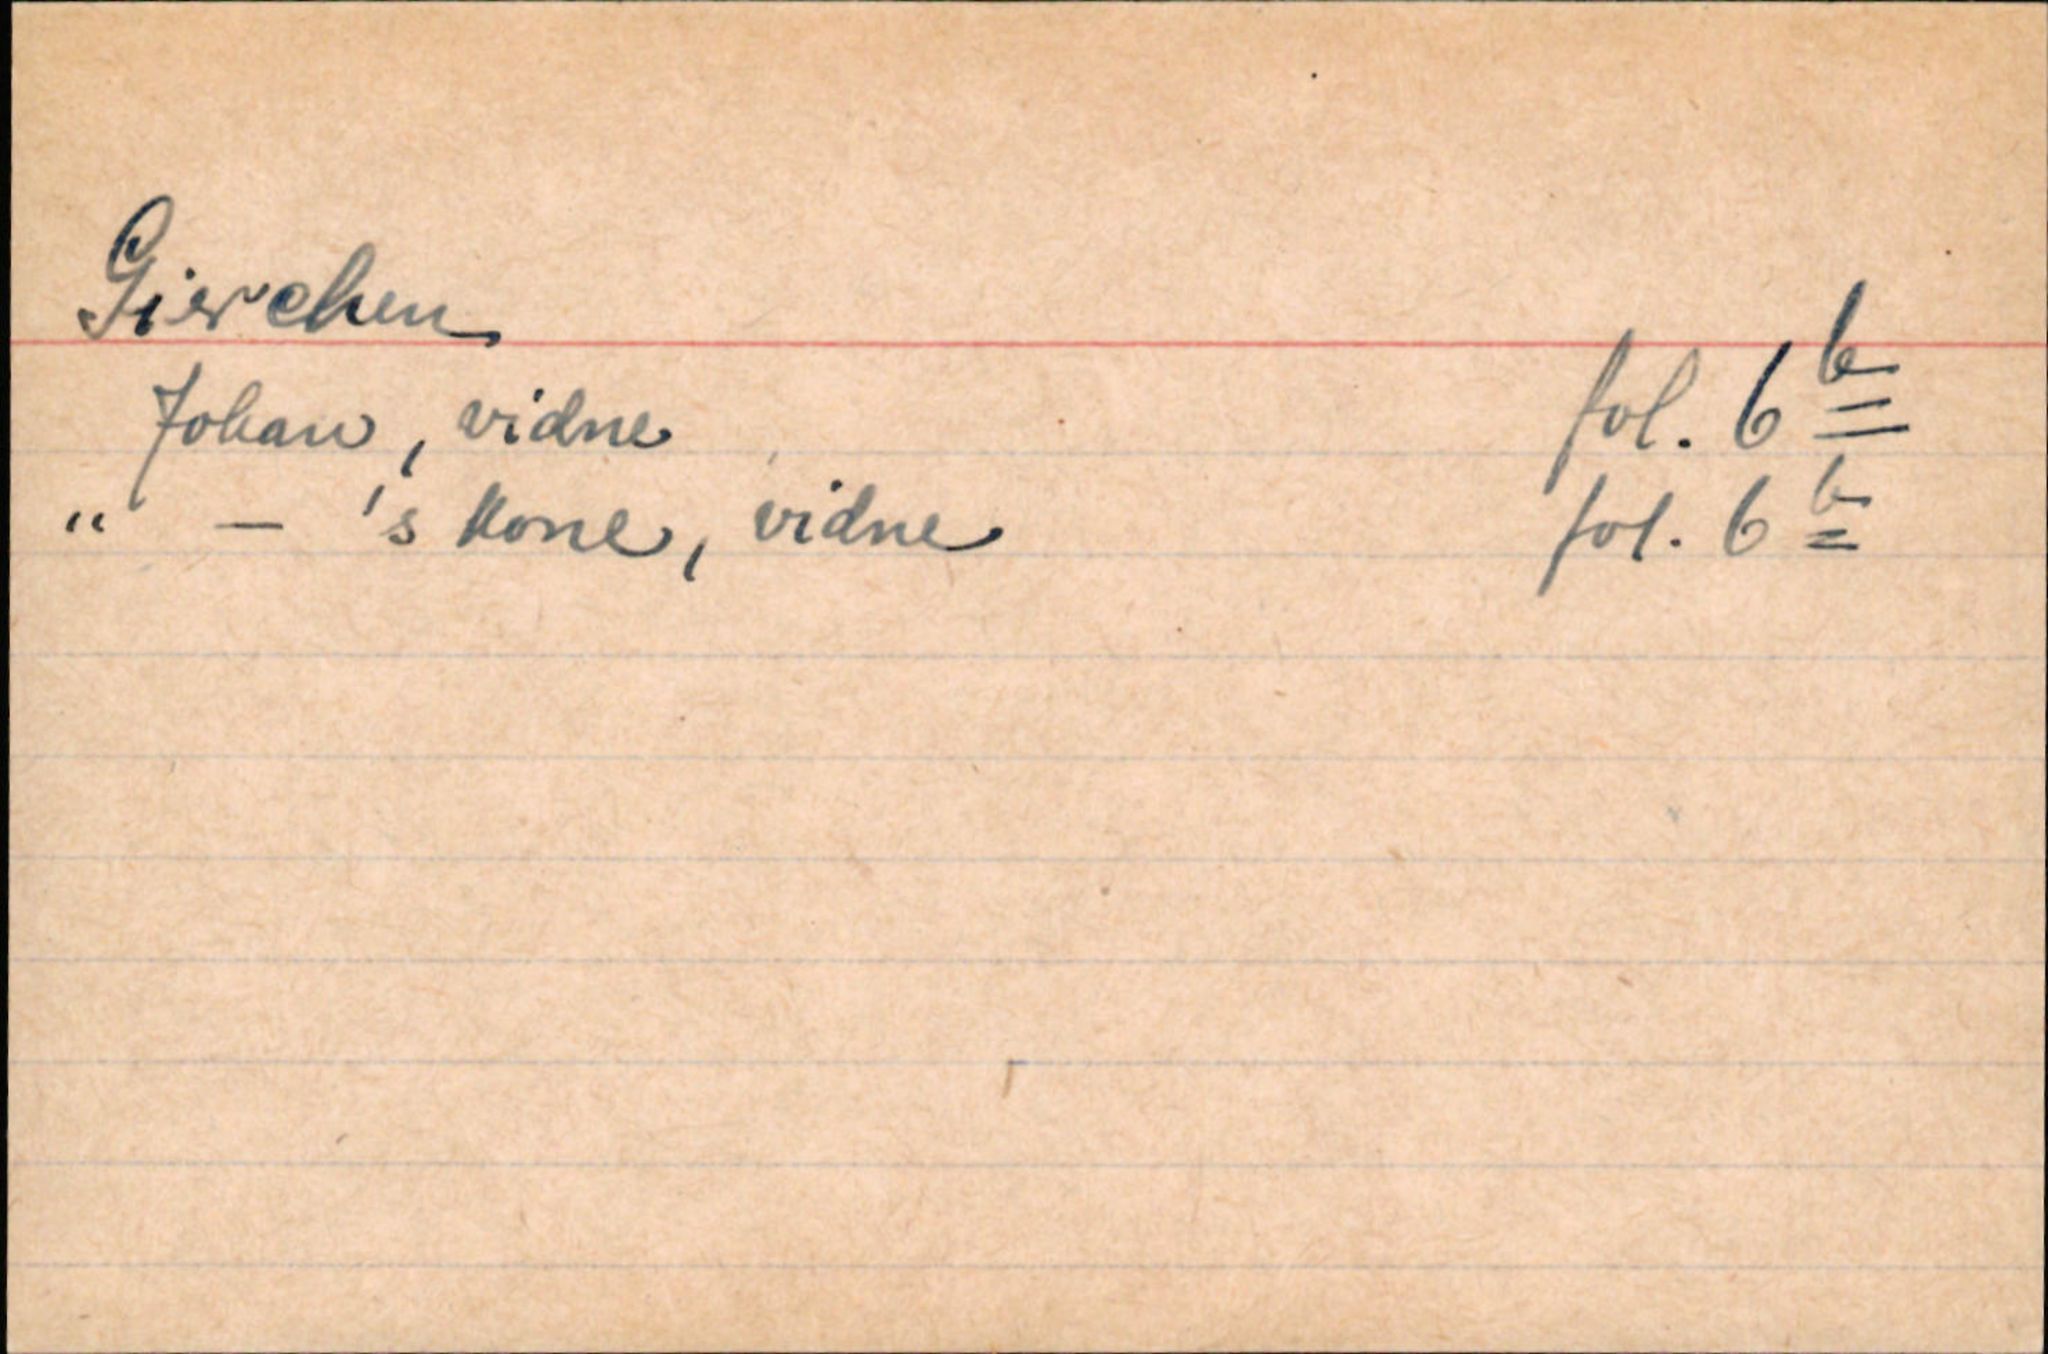 Gierchen
Johan, vidne fol. 6 b
" — 's kone, vidne fol. 6 b